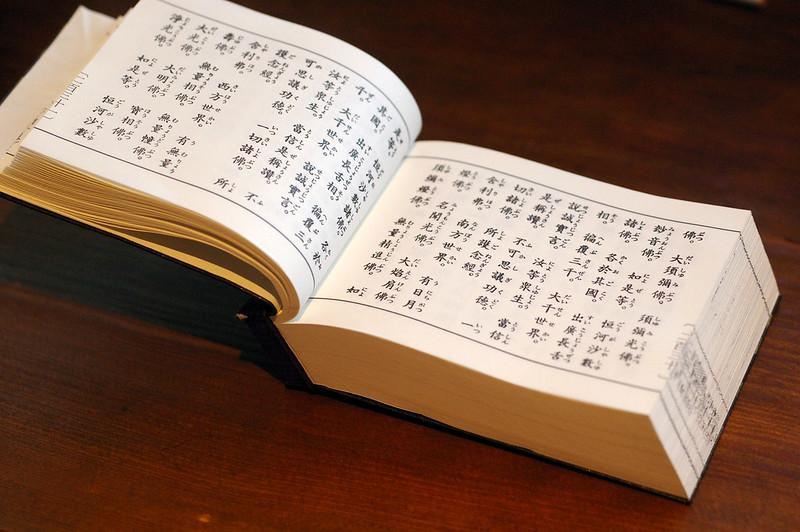 佛。大須彌佛。須彌光佛。
妙音佛。如是等。恒河沙數
諸佛。各於其國。出廣長舌
相。徧覆三千。大千世界。
說誠實言。汝等衆生。當信
是稱讚。不可思議功德。一
切諸佛。所護念經。
舍利弗。南方世界。有日月
燈佛。名聞光佛。大焰肩佛。
須彌燈佛。無量精進佛。如
是等。恒河沙數諸佛。各於
其國。出廣長舌相。徧覆三
千。大千世界。說誠實言。
汝等衆生。當信是稱讚。不
可思議功德。一切諸佛。所
護念經。
舍利弗。西方世界。有無量
壽佛。無量相佛。無量幢佛。
大光佛。大明佛。寶相佛。
淨光佛。如是等。恒河沙數